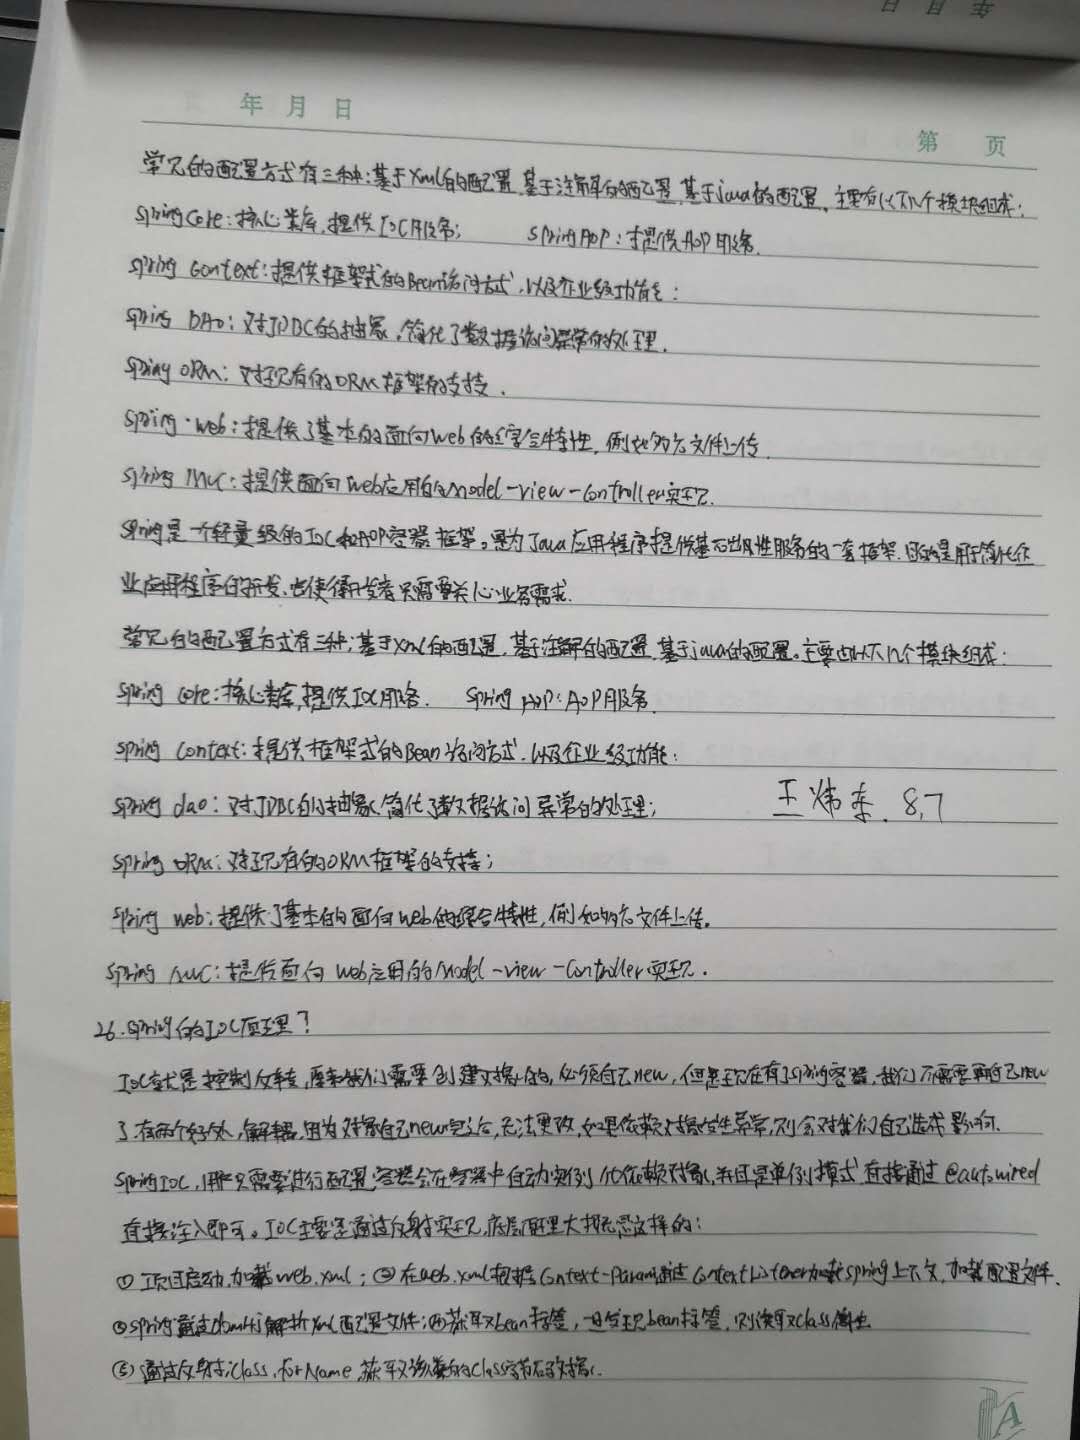 年 月 日
第 页
常见的配置方式有三种:基于Xml的配置,基于注解的配置,基于java的配置,主要有以下几个模块组成:
Spring Core:核心类库,提供IOC服务; Spring AOP:提供AOP服务.
Spring Context:提供框架式的Bean访问方式,以及企业级功能:
Spring DAO:对JDBC的抽象,简化了数据访问异常的处理.
Spring ORM:对现有的ORM框架的支持.
Spring web:提供了基本的面向Web的综合特性,例如多方文件上传.
Spring MVC:提供面向Web应用的Model-view-Controller实现.
Spring是一个轻量级的IOC和AOP容器框架。是为Java应用程序提供基础性服务的一套框架.目的是用于简化企
业应用程序的开发.它使得开发者只需要关心业务需求.
常见的配置方式有三种:基于Xml的配置,基于注解的配置,基于java的配置。主要由以下几个模块组成:
Spring Core:核心类库,提供IOC服务. Spring AOP:AOP服务.
Spring Context:提供框架式的Bean访问方式.以及企业级功能:
Spring dao:对JDBC的抽象,简化了数据访问异常的处理;
王炜 8.7
Spring ORM:对现有的ORM框架的支持;
Spring web:提供了基本的面向web的综合特性,例如多方文件上传。
Spring MVC:提供面向web应用的Model-view-Controller实现.
26.Spring的IOC原理?
IOC就是控制反转,原来我们需要创建对象的,必须自己new,但是现在有了Spring容器,我们不需要再自己new
了.有两个好处,解耦,因为对象自己new完之后,无法更改,如果依赖对象发生异常,则会对我们自己造成影响.
Spring IOC,用户只需要进行配置,容器会在容器中自动实例化依赖对象,并且是单例模式,直接通过@autowired
直接注入即可。IOC主要是通过反射实现,底层原理大概是这样的:
①项目启动,加载web.xml;②在web.xml根据Context-Param通过ContextListener加载Spring上下文,加载配置文件.
③Spring通过dom4j解析Xml配置文件;④获取bean标签,一旦发现bean标签,则读取class属性
⑤通过反射,Class.forName,获取该类的Class字节码对象.
A